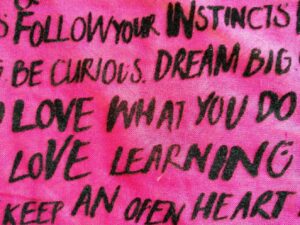 FOLLOW YOUR INSTINCTS
BE CURIOUS. DREAM BIG
LOVE WHAT YOU DO
LOVE LEARNING
KEEP AN OPEN HEART